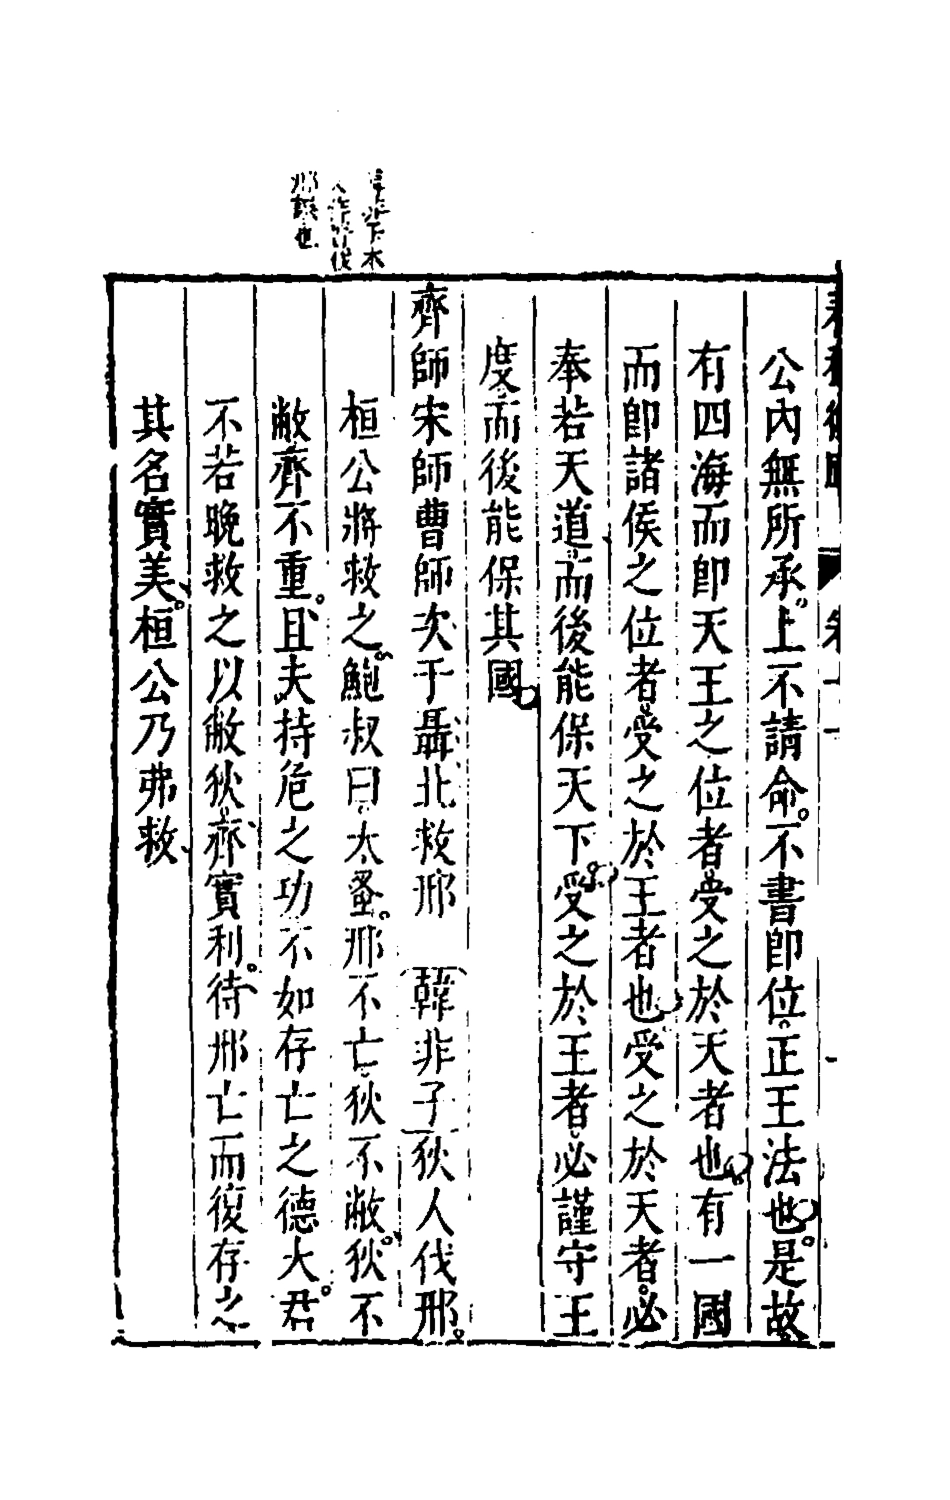 公內無所承上不請命不書即位正王法也是故
有四海而即天王之位者受之於天者也有一國
而即諸侯之位者受之於王者也受之於天者必
奉若天道而後能保天下受之於王者必謹守王
度而後能保其國
齊師宋師曹師次于聶北救邢 韓非子狄人伐邢
桓公將救之鮑叔曰太蚤邢不亡狄不敝狄不
敝齊不重且夫持危之功不如存亡之德大君
不若晚救之以敝狄齊實利待邢亡而復存之
其名實美桓公乃弗救